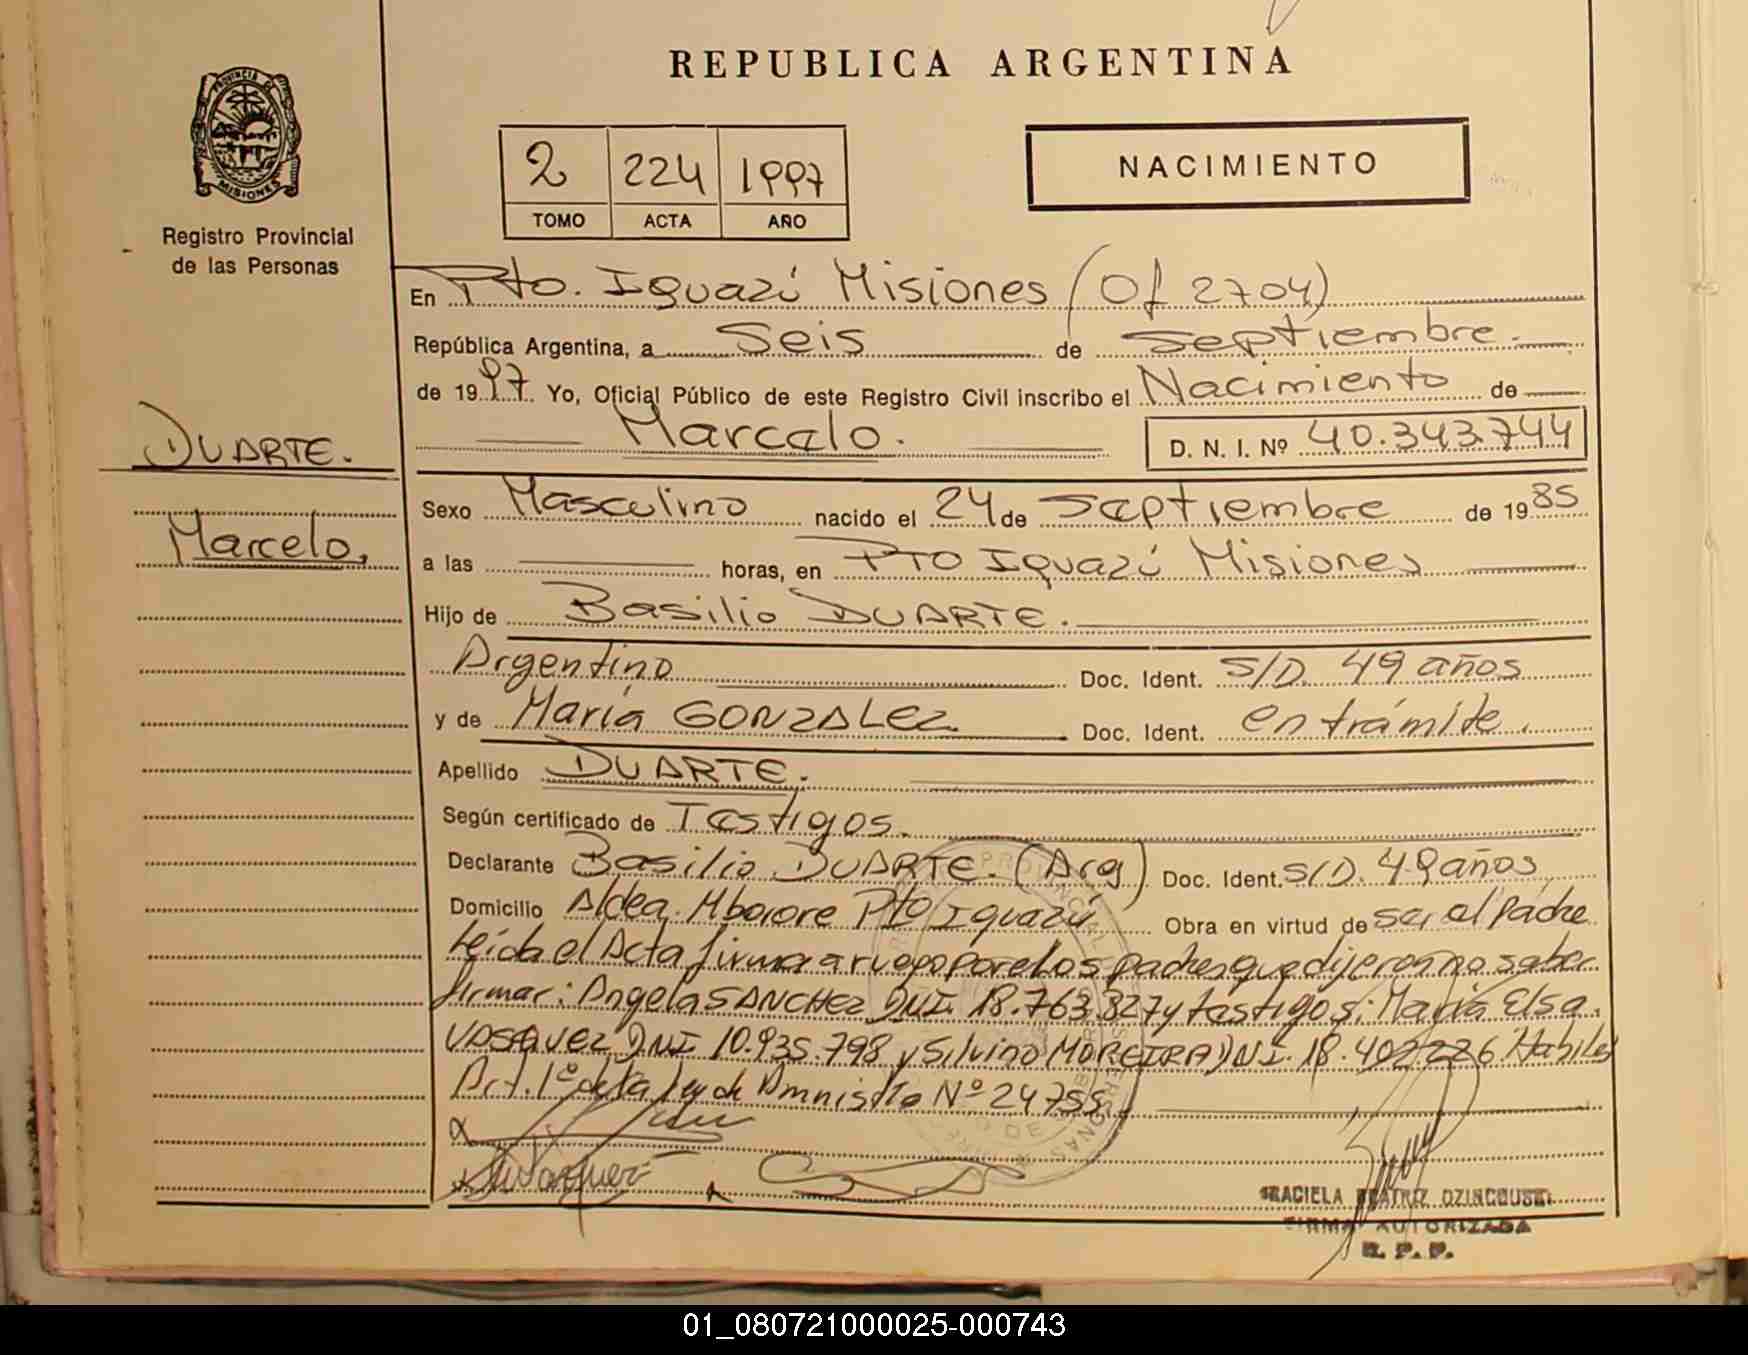 REPUBLICA ARGENTINA
PROVINCIA D
MISIONES
Registro Provincial
de las Personas
2 224 1997
TOMO ACTA AÑO
NACIMIENTO
En Pto. Iguazú Misiones (Of 2704)
República Argentina, a Seis de Septiembre.
de 1997. Yo, Oficial Público de este Registro Civil inscribo el Nacimiento de
Marcelo. D. N. I. Nº 40.343.744
DUARTE.
Marcelo,
Sexo Masculino nacido el 24 de Septiembre de 1985
a las horas, en Pto Iguazú Misiones
Hijo de Basilio DUARTE.
Argentino Doc. Ident. S/D. 49 años
y de María GONZALEZ Doc. Ident. en trámite.
Apellido DUARTE.
Según certificado de Testigos.
Declarante Basilio DUARTE. (Arg) Doc. Ident. S/D. 49 años
Domicilio Aldea Mborore Pto Iguazú Obra en virtud de ser el padre
Leída el Acta firma a ruego por los padres que dijeron no saber
firmar: Angela SANCHEZ DNI. 18.763.827 y testigos: María Elsa
VASQUEZ DNI 10.935.798 y Silvino MOREIRA DNI. 18.402226 Habiles
Art. 1º de la ley de Amnistía Nº 24755.
GRACIELA BEATRIZ
FIRMA AUTORIZADA
R. P. P.
01_080721000025-000743